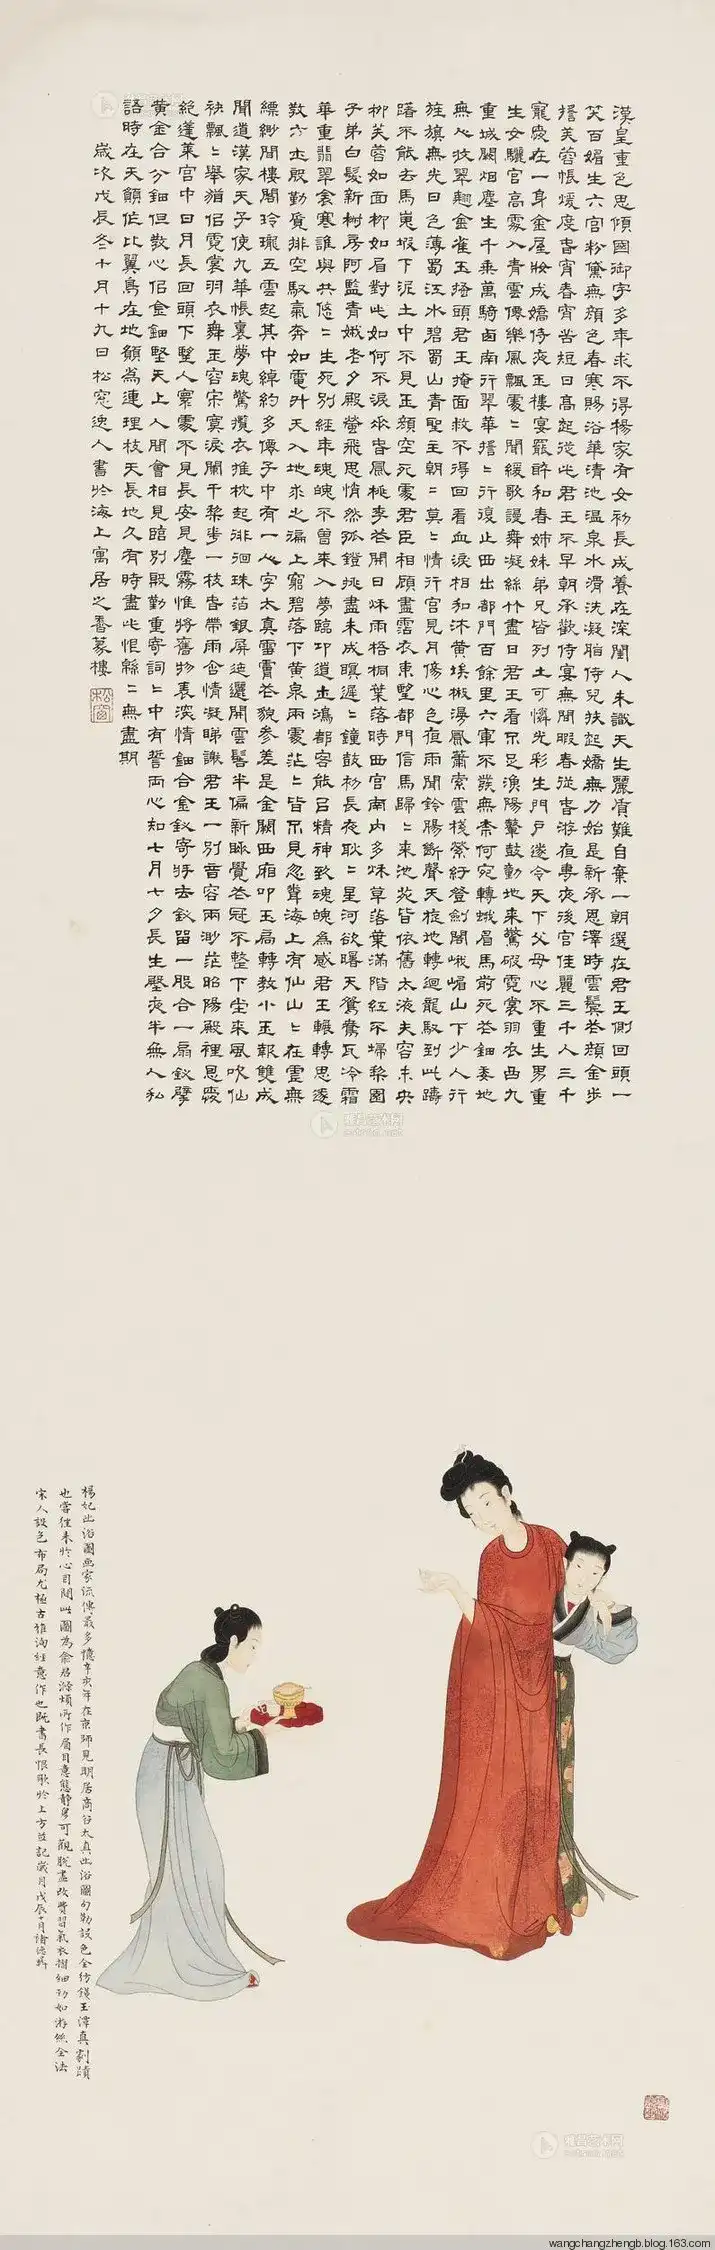 漢皇重色思傾國御宇多年求不得楊家有女初長成養在深閨人未識天生麗質難自棄一朝選在君王側回頭一
笑百媚生六宮粉黛無顏色春寒賜浴華清池溫泉水滑洗凝脂侍兒扶起嬌無力始是新承恩澤時雲鬢花顏金步
搖芙蓉帳煖度春宵春宵苦短日高起從此君王不早朝承歡侍宴無閒暇春從春游夜專夜後宮佳麗三千人三千
寵愛在一身金屋妝成嬌侍夜玉樓宴罷醉和春姊妹弟兄皆列土可憐光彩生門戶遂令天下父母心不重生男重
生女驪宮高處入青雲僊樂風飄處〻聞緩歌謾舞凝絲竹盡日君王看不足漁陽鼙鼓動地來驚破霓裳羽衣曲九
重城闕烟塵生千乘萬騎西南行翠華搖〻行復止西出都門百餘里六軍不發無柰何宛轉蛾眉馬前死花鈿委地
無人收翠翹金雀玉搔頭君王掩面救不得回看血淚相和流黃埃散漫風蕭索雲棧縈紆登劍閣峨嵋山下少人行
旌旗無光日色薄蜀江水碧蜀山青聖主朝〻莫〻情行宮見月傷心色夜雨聞鈴腸斷聲天旋地轉迴龍馭到此躊
躇不能去馬嵬坡下泥土中不見玉顏空死處君臣相顧盡霑衣東望都門信馬歸〻來池苑皆依舊太液芙容未央
柳芙蓉如面柳如眉對此如何不淚垂春風桃李花開日秋雨梧桐葉落時西宮南內多秋草落葉滿階紅不掃梨園
子弟白髮新椒房阿監青娥老夕殿螢飛思悄然孤鐙挑盡未成瞑遲〻鐘鼓初長夜耿〻星河欲曙天鴛鴦瓦冷霜
華重翡翠衾寒誰與共悠〻生死別經年魂魄不曾來入夢臨邛道士鴻都客能召精神致魂魄為感君王輾轉思遂
教方士殷勤覓排空馭氣奔如電升天入地求之遍上窮碧落下黃泉兩處茫〻皆不見忽聞海上有仙山〻在虛無
縹緲間樓閣玲瓏五雲起其中綽約多僊子中有一人字太真雪膚花貌參差是金闕西廂叩玉扃轉教小玉報雙成
聞道漢家天子使九華帳裏夢魂驚攬衣推枕起徘徊珠箔銀屏迤邐開雲鬢半偏新睡覺花冠不整下堂來風吹仙
袂飄〻舉猶似霓裳羽衣舞玉容寂寞淚闌干梨花一枝春帶雨含情凝睇謝君王一別音容兩渺茫昭陽殿裡恩愛
絕蓬萊宮中日月長回頭下望人寰處不見長安見塵霧惟將舊物表深情鈿合金釵寄將去釵留一股合一扇釵擘
黃金合分鈿但教心似金鈿堅天上人間會相見臨別殷勤重寄詞〻中有誓兩心知七月七夕長生殿夜半無人私
語時在天願作比翼鳥在地願為連理枝天長地久有時盡此恨緜〻無盡期
歲次戊辰冬十月十九日松窓逸人書於海上寓居之香篆樓
松窗
楊妃出浴圖画家流傳最多憶辛亥年在京師見明居商谷太真出浴圖勾勒設色全仿錢玉潭真劇蹟
也嘗往來於心目間此圖為余君滌煩所作眉目意態静穆可觀脫盡改費習氣衣褶細勁如游絲全法
宋人設色布局尤極古雅洵經意作也既書長恨歌於上方並記歲月戊辰十月褚德彝
雅昌艺术网
wangchangzhengb.blog.163.com